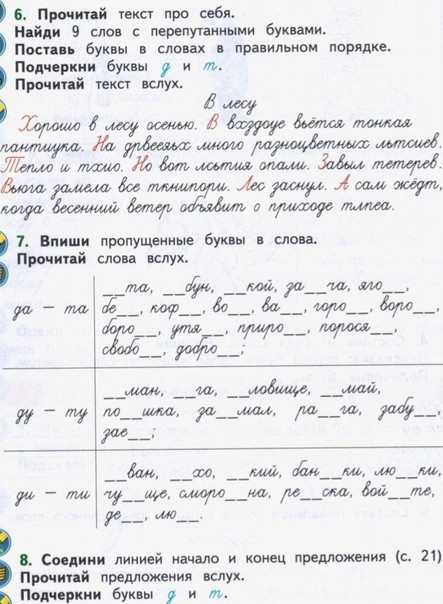 6. Прочитай текст про себя.
Найди 9 слов с перепутанными буквами.
Поставь буквы в словах в правильном порядке.
Подчеркни буквы д и т.
Прочитай текст вслух.
В лесу
Хорошо в лесу осенью. В вхздоуе вьётся тонкая
пантищка. На дрвееьях много разноцветных льтсиев.
Тепло и тхио. Но вот лсьтия опали. Завыл тетерев.
Вьюга замела все ткнипори. Лес заснул. А сам жёдт,
когда весенний ветер объявит о приходе тлпеа.
7. Впиши пропущенные буквы в слова.
Прочитай слова вслух.
да – та
__та, __бун, __кой, за__ча, яго__,
бе__, коф__, во__, ва__, горо__, воро__,
боро__, утя__, приро__, порося__,
свобо__, добро__;
ду – ту
__ман, __га, __ловище, __май,
по__шка, за__мал, ра__га, забу__,
зае__;
ди – ти
__ван, __хо, __кий, бан__ки, лю__ки,
чу__ще, сморо__на, ре__ска, вой__те,
де__, лю__.
8. Соедини линией начало и конец предложения (с. 21)
Прочитай предложения вслух.
Подчеркни буквы д и т.